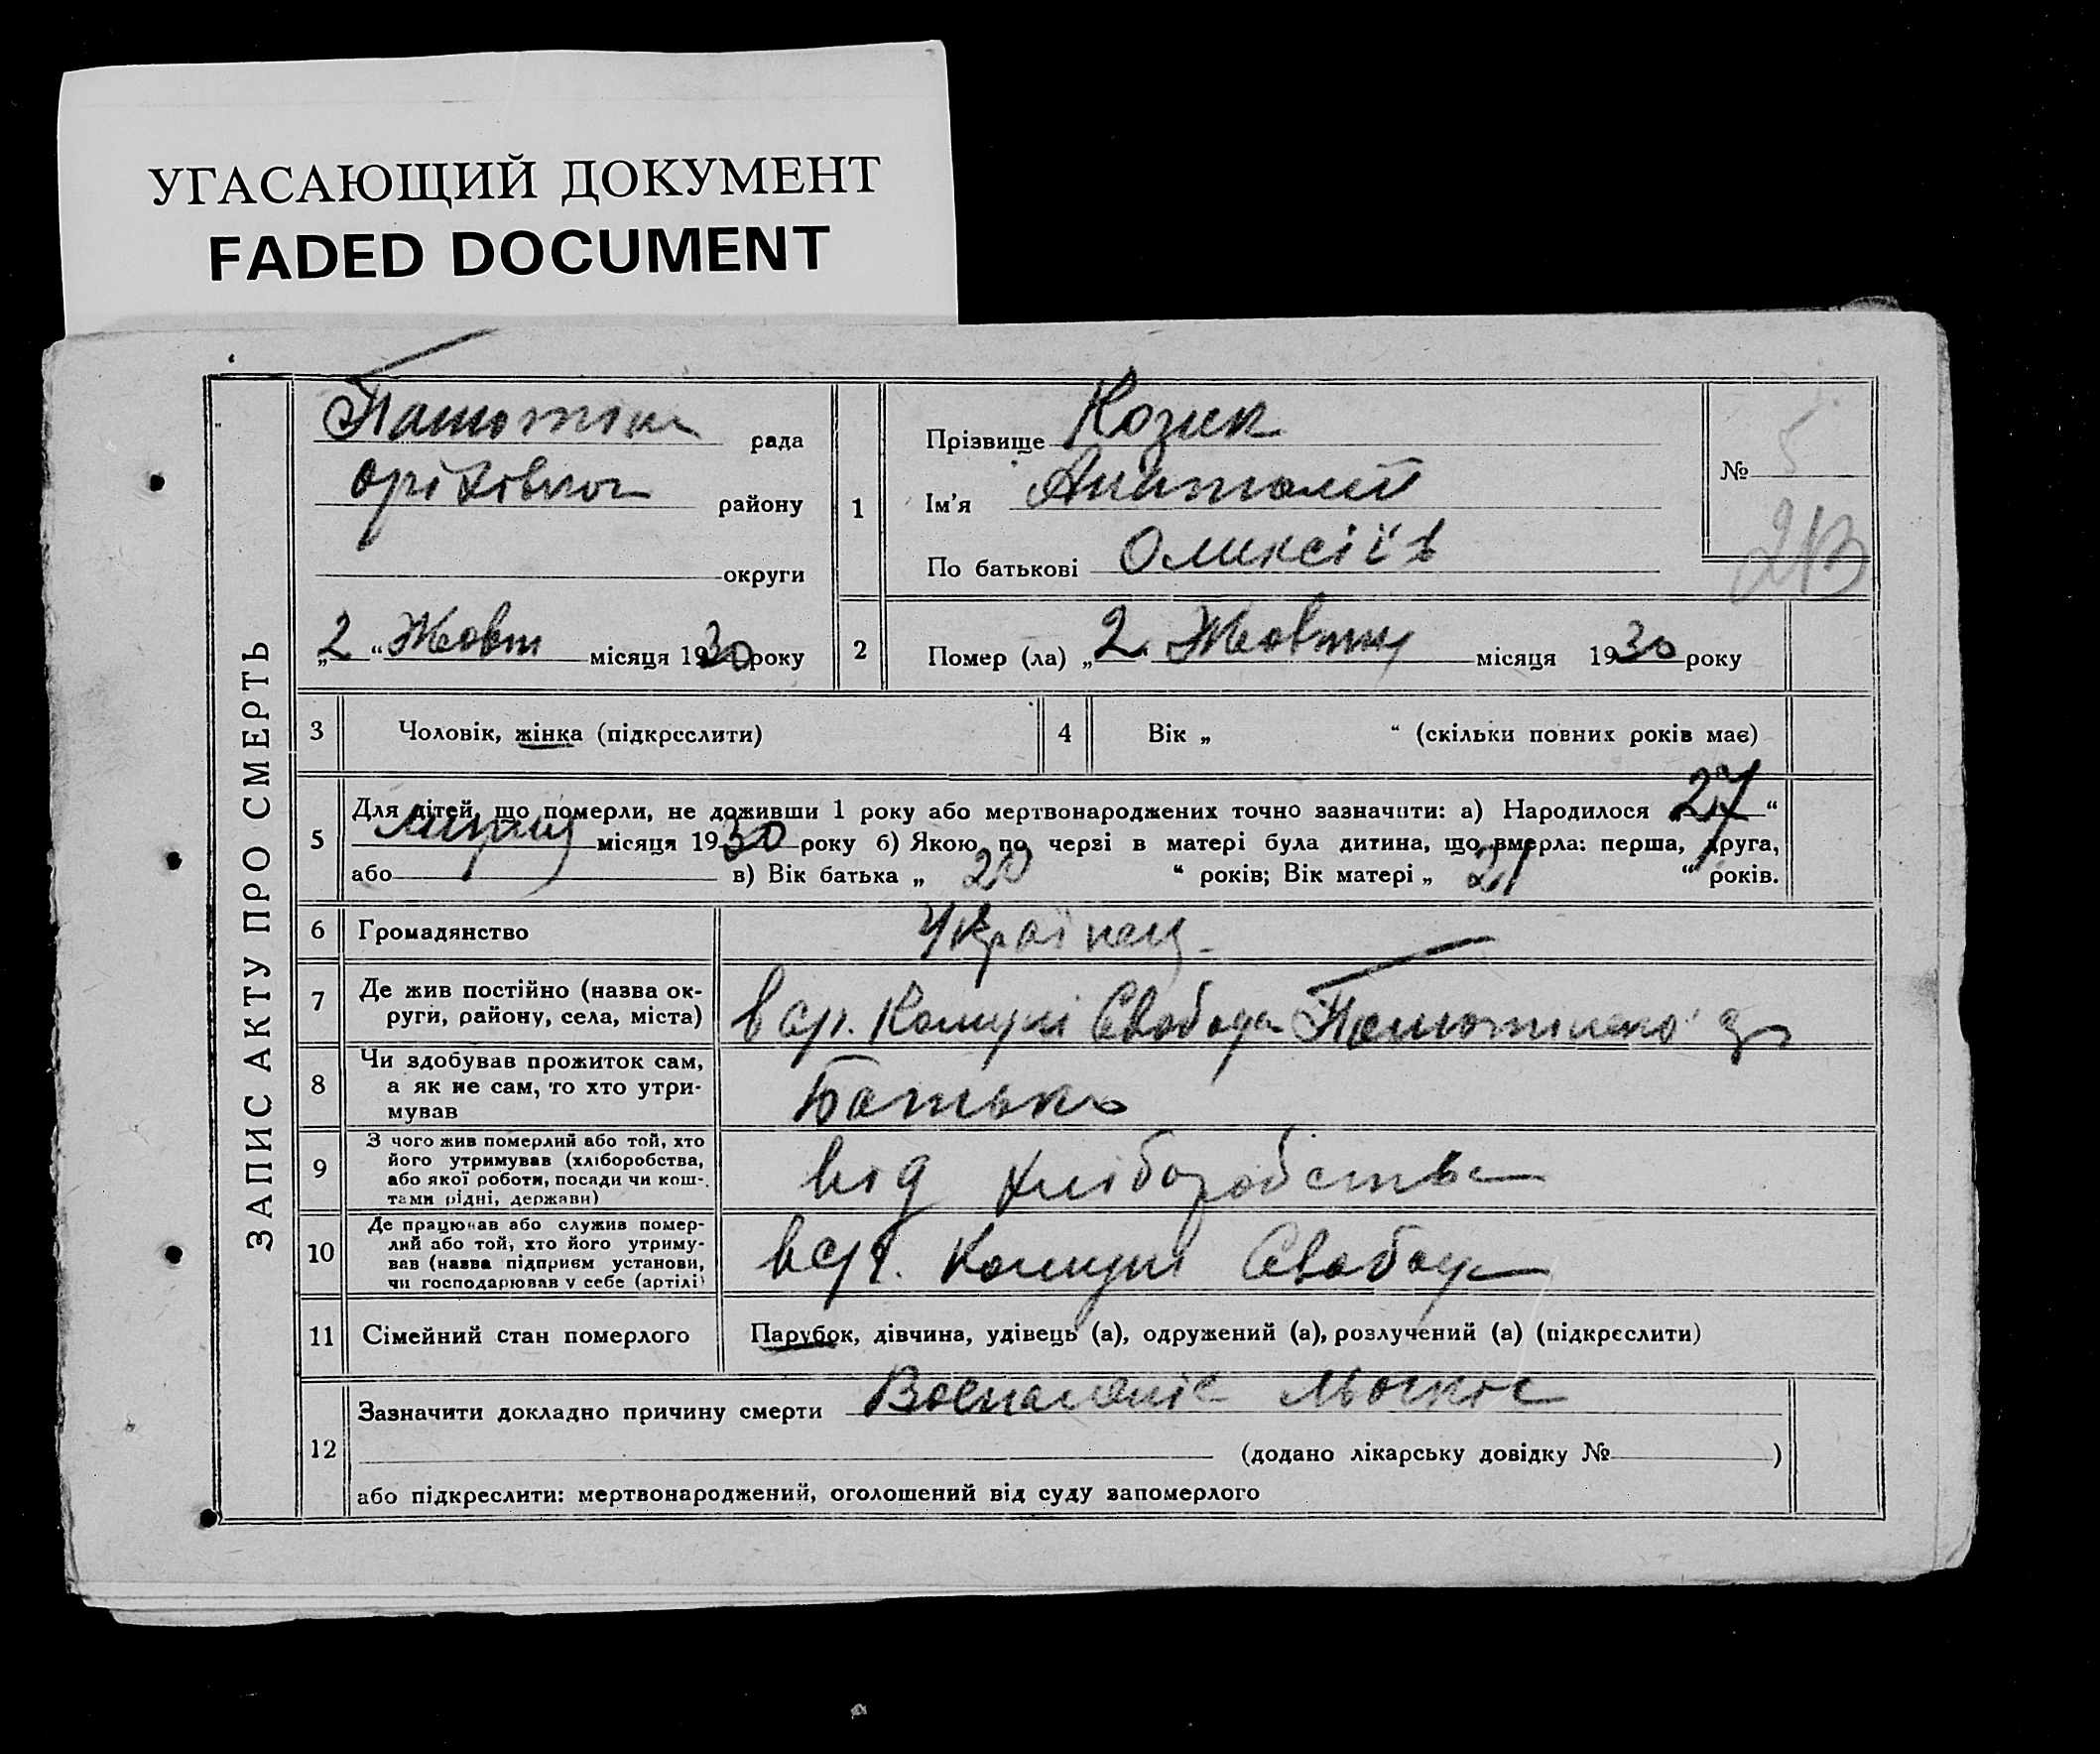 УГАСАЮЩИЙ ДОКУМЕНТ
FADED DOCUMENT
ЗАПИС АКТУ ПРО СМЕРТЬ
рада
району
округи
„2“ Жовт місяця 1930 року
1
Прізвище Козик
Ім'я Анатолій
По батькові Олексіїв
№ 5
2 Помер (ла) „2“ Жовтня місяця 1930 року
3 Чоловік, жінка (підкреслити)
4 Вік „ “ (скільки повних років має)
5 Для дітей, що померли, не доживши 1 року або мертвонароджених точно зазначити: а) Народилося 27 “
місяця 1930 року б) Якою по черзі в матері була дитина, що вмерла: перша, друга,
або в) Вік батька „ 20 “ років; Вік матері „ 21 “ років.
6 Громадянство Українец
7 Де жив постійно (назва ок-
руги, району, села, міста)
Комуні Свобода
8 Чи здобував прожиток сам,
а як не сам, то хто утри-
мував
Батько
9 З чого жив померлий або той, хто
його утримував (хліборобства,
або якої роботи, посади чи кош-
тами рідні, держави)
від хліборобства
10 Де працював або служив помер-
лий або той, хто його утриму-
вав (назва підприєм установи,
чи господарював у себе (артілі)
Комуні Свобода
11 Сімейний стан померлого Парубок, дівчина, удівець (а), одружений (а), розлучений (а) (підкреслити)
12 Зазначити докладно причину смерти
(додано лікарську довідку № )
або підкреслити: мертвонароджений, оголошений від суду запомерлого